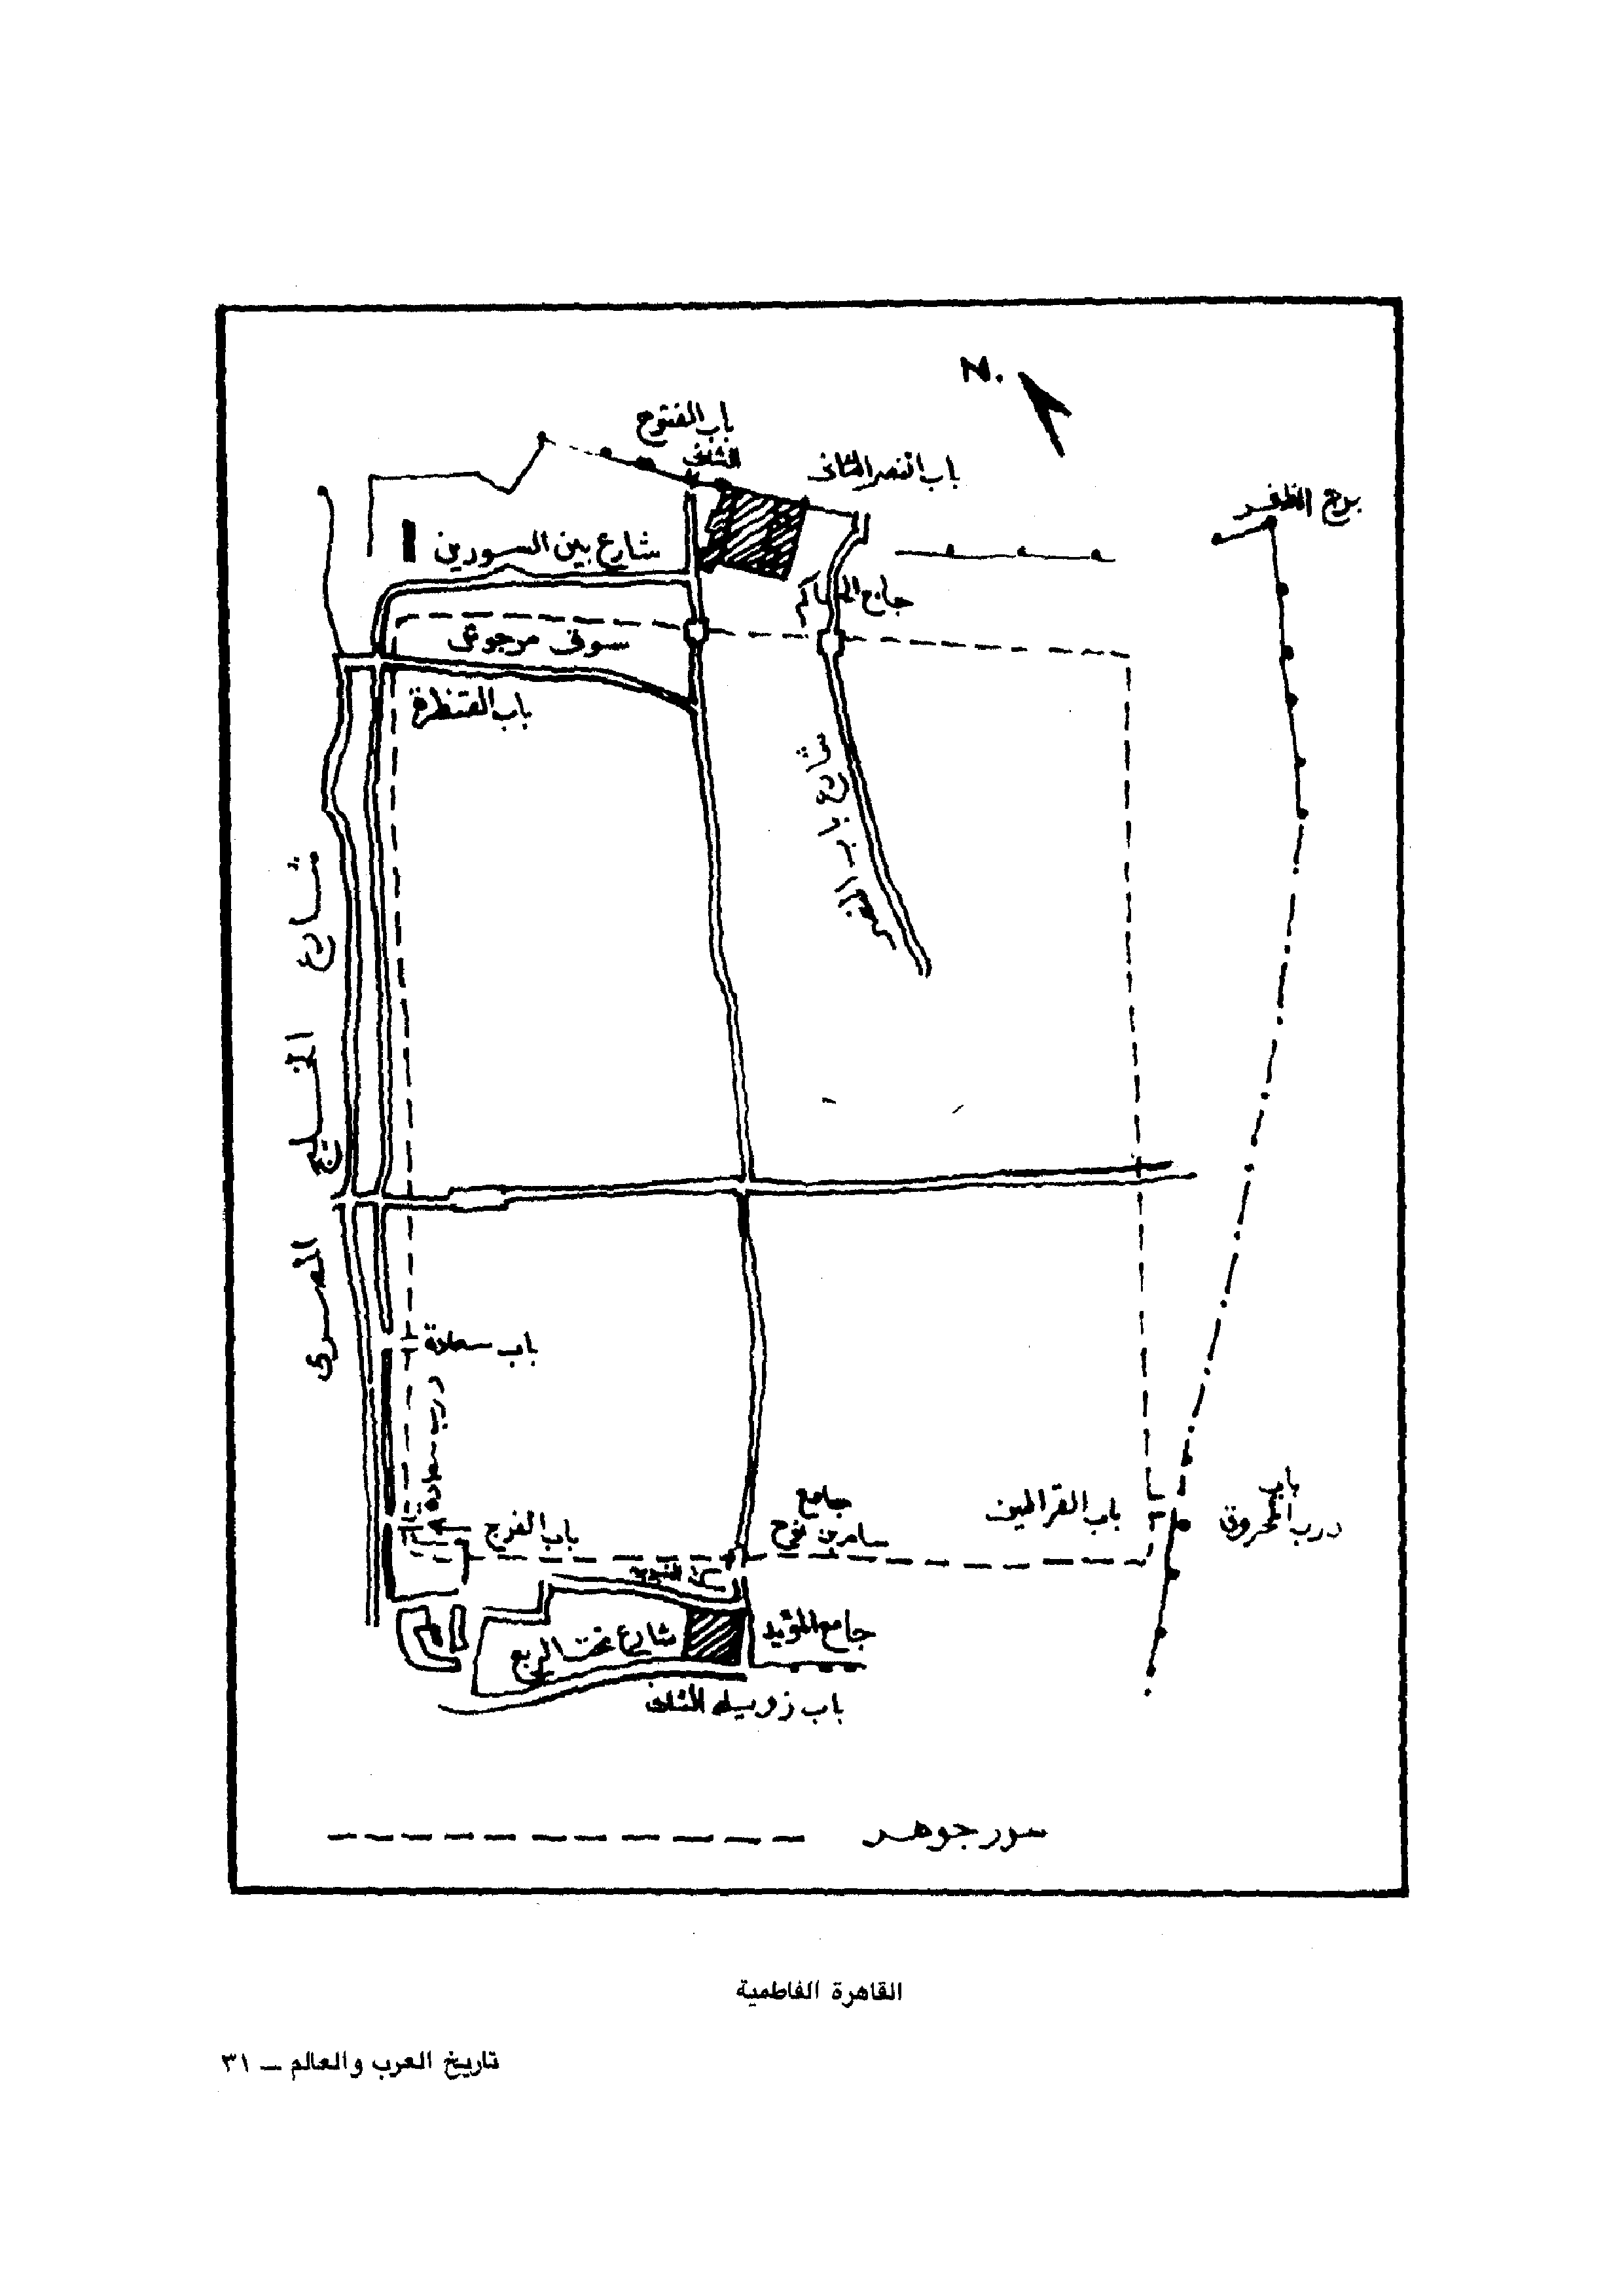 N.
باب الفتوح
الثانى
باب النصر الثانى
برج الظفر
شارع بين السورين
جامع الحاكم
سوق مرجوش
باب القنطرة
شارع
شارع الخليج المصرى
باب سعادة
درب سعادة
باب الفرج
جامع
سام بن نوح
باب القراطين
باب
درب المحروق
شارع تحت الربع
جامع المؤيد
باب زويلة الثانى
سور جوهر
القاهرة الفاطمية
تاريخ العرب والعالم – ٣١